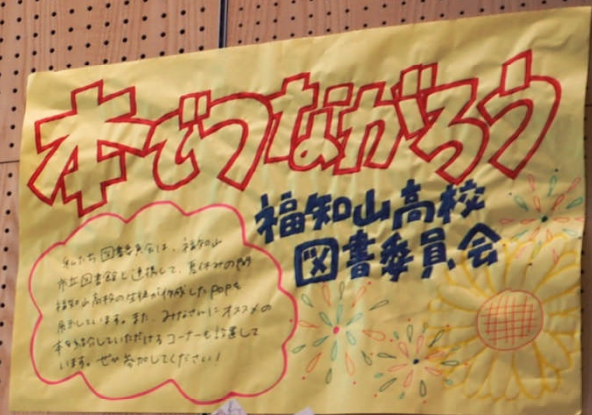 本でつながろう
福知山高校
図書委員会
私たち図書委員会は、福知山
市立図書館と連携して、夏休みの間
福知山高校の生徒が作成したPOPを
展示しています。また、みなさんにオススメの
本を紹介していただけるコーナーも設置して
います。ぜひ参加してください!